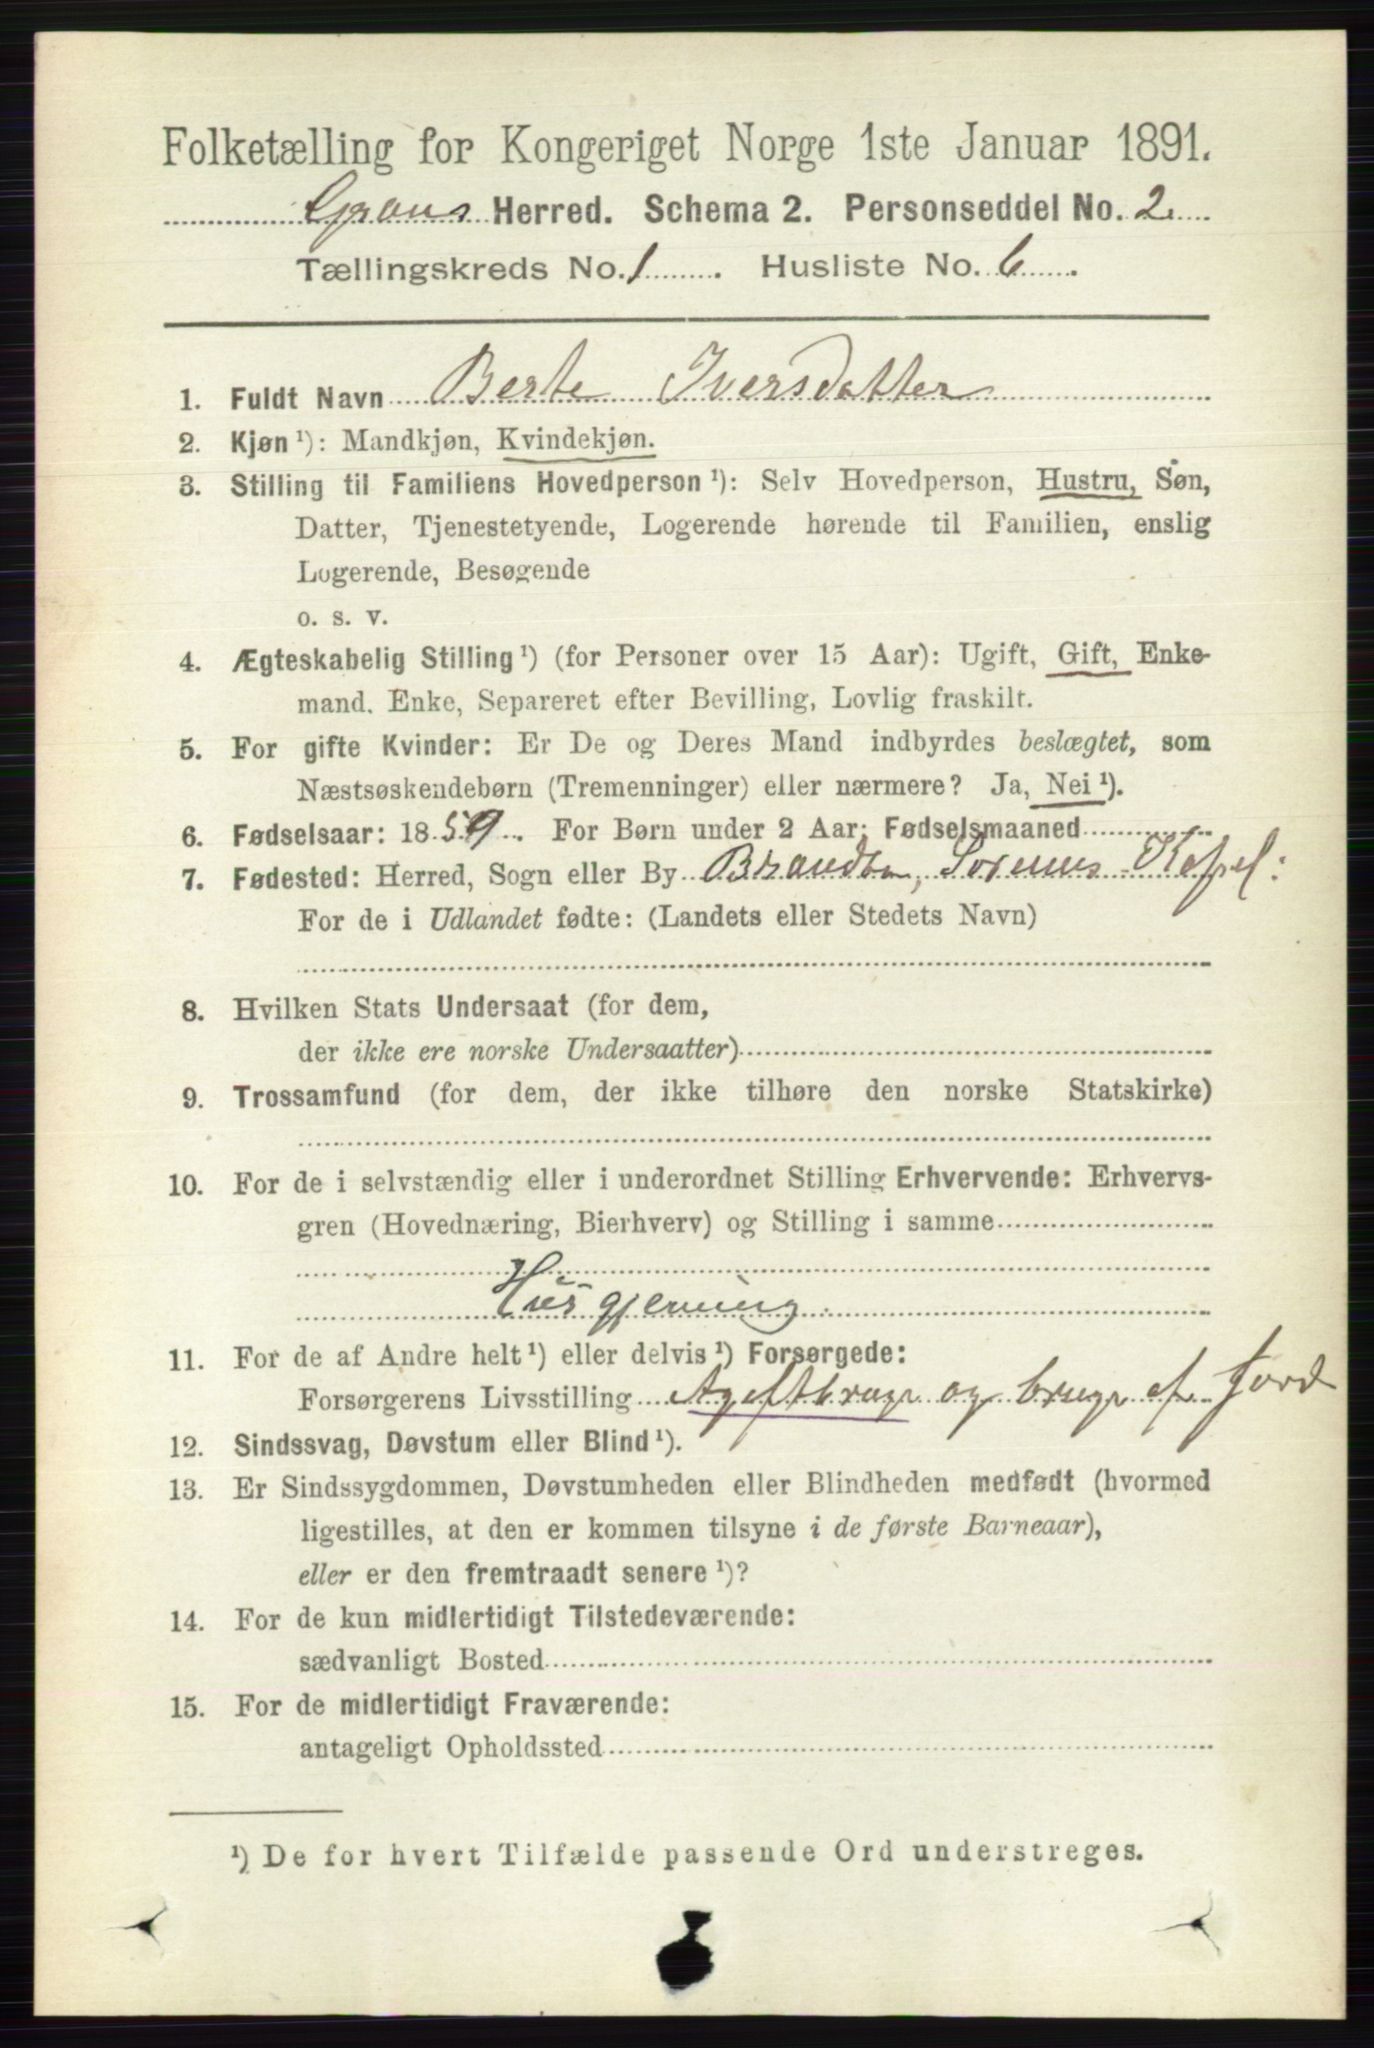 Folketælling for Kongeriget Norge 1ste Januar 1891.
Grans Herred. Schema 2. Personseddel No. 2
Tællingskreds No. 1. Husliste No. 6.
1. Fuldt Navn Berte Iversdatter
2. Kjøn ¹): Mandkjøn, Kvindekjøn.
3. Stilling til Familiens Hovedperson ¹): Selv Hovedperson, Hustru, Søn,
Datter, Tjenestetyende, Logerende hørende til Familien, enslig
Logerende, Besøgende
o. s. v.
4. Ægteskabelig Stilling ¹) (for Personer over 15 Aar): Ugift, Gift, Enke-
mand. Enke, Separeret efter Bevilling, Lovlig fraskilt.
5. For gifte Kvinder: Er De og Deres Mand indbyrdes beslægtet, som
Næstsøskendebørn (Tremenninger) eller nærmere? Ja, Nei ¹).
6. Fødselsaar: 1859. For Børn under 2 Aar: Fødselsmaaned
7. Fødested: Herred, Sogn eller By Brandbu, Sørums Kapel:
For de i Udlandet fødte: (Landets eller Stedets Navn)
8. Hvilken Stats Undersaat (for dem,
der ikke ere norske Undersaatter)
9. Trossamfund (for dem, der ikke tilhøre den norske Statskirke)
10. For de i selvstændig eller i underordnet Stilling Erhvervende: Erhvervs-
gren (Hovednæring, Bierhverv) og Stilling i samme
Husgjerning.
11. For de af Andre helt ¹) eller delvis ¹) Forsørgede:
Forsørgerens Livsstilling og bruger Jord
12. Sindssvag, Døvstum eller Blind ¹).
13. Er Sindssygdommen, Døvstumheden eller Blindheden medfødt (hvormed
ligestilles, at den er kommen tilsyne i de første Barneaar),
eller er den fremtraadt senere ¹)?
14. For de kun midlertidigt Tilstedeværende:
sædvanligt Bosted
15. For de midlertidigt Fraværende:
antageligt Opholdssted
¹) De for hvert Tilfælde passende Ord understreges.